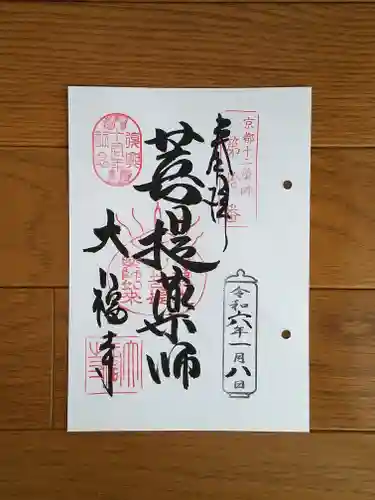 奉拝
京都十二薬師
第 番
菩提薬師
大福寺
令和六年一月八日